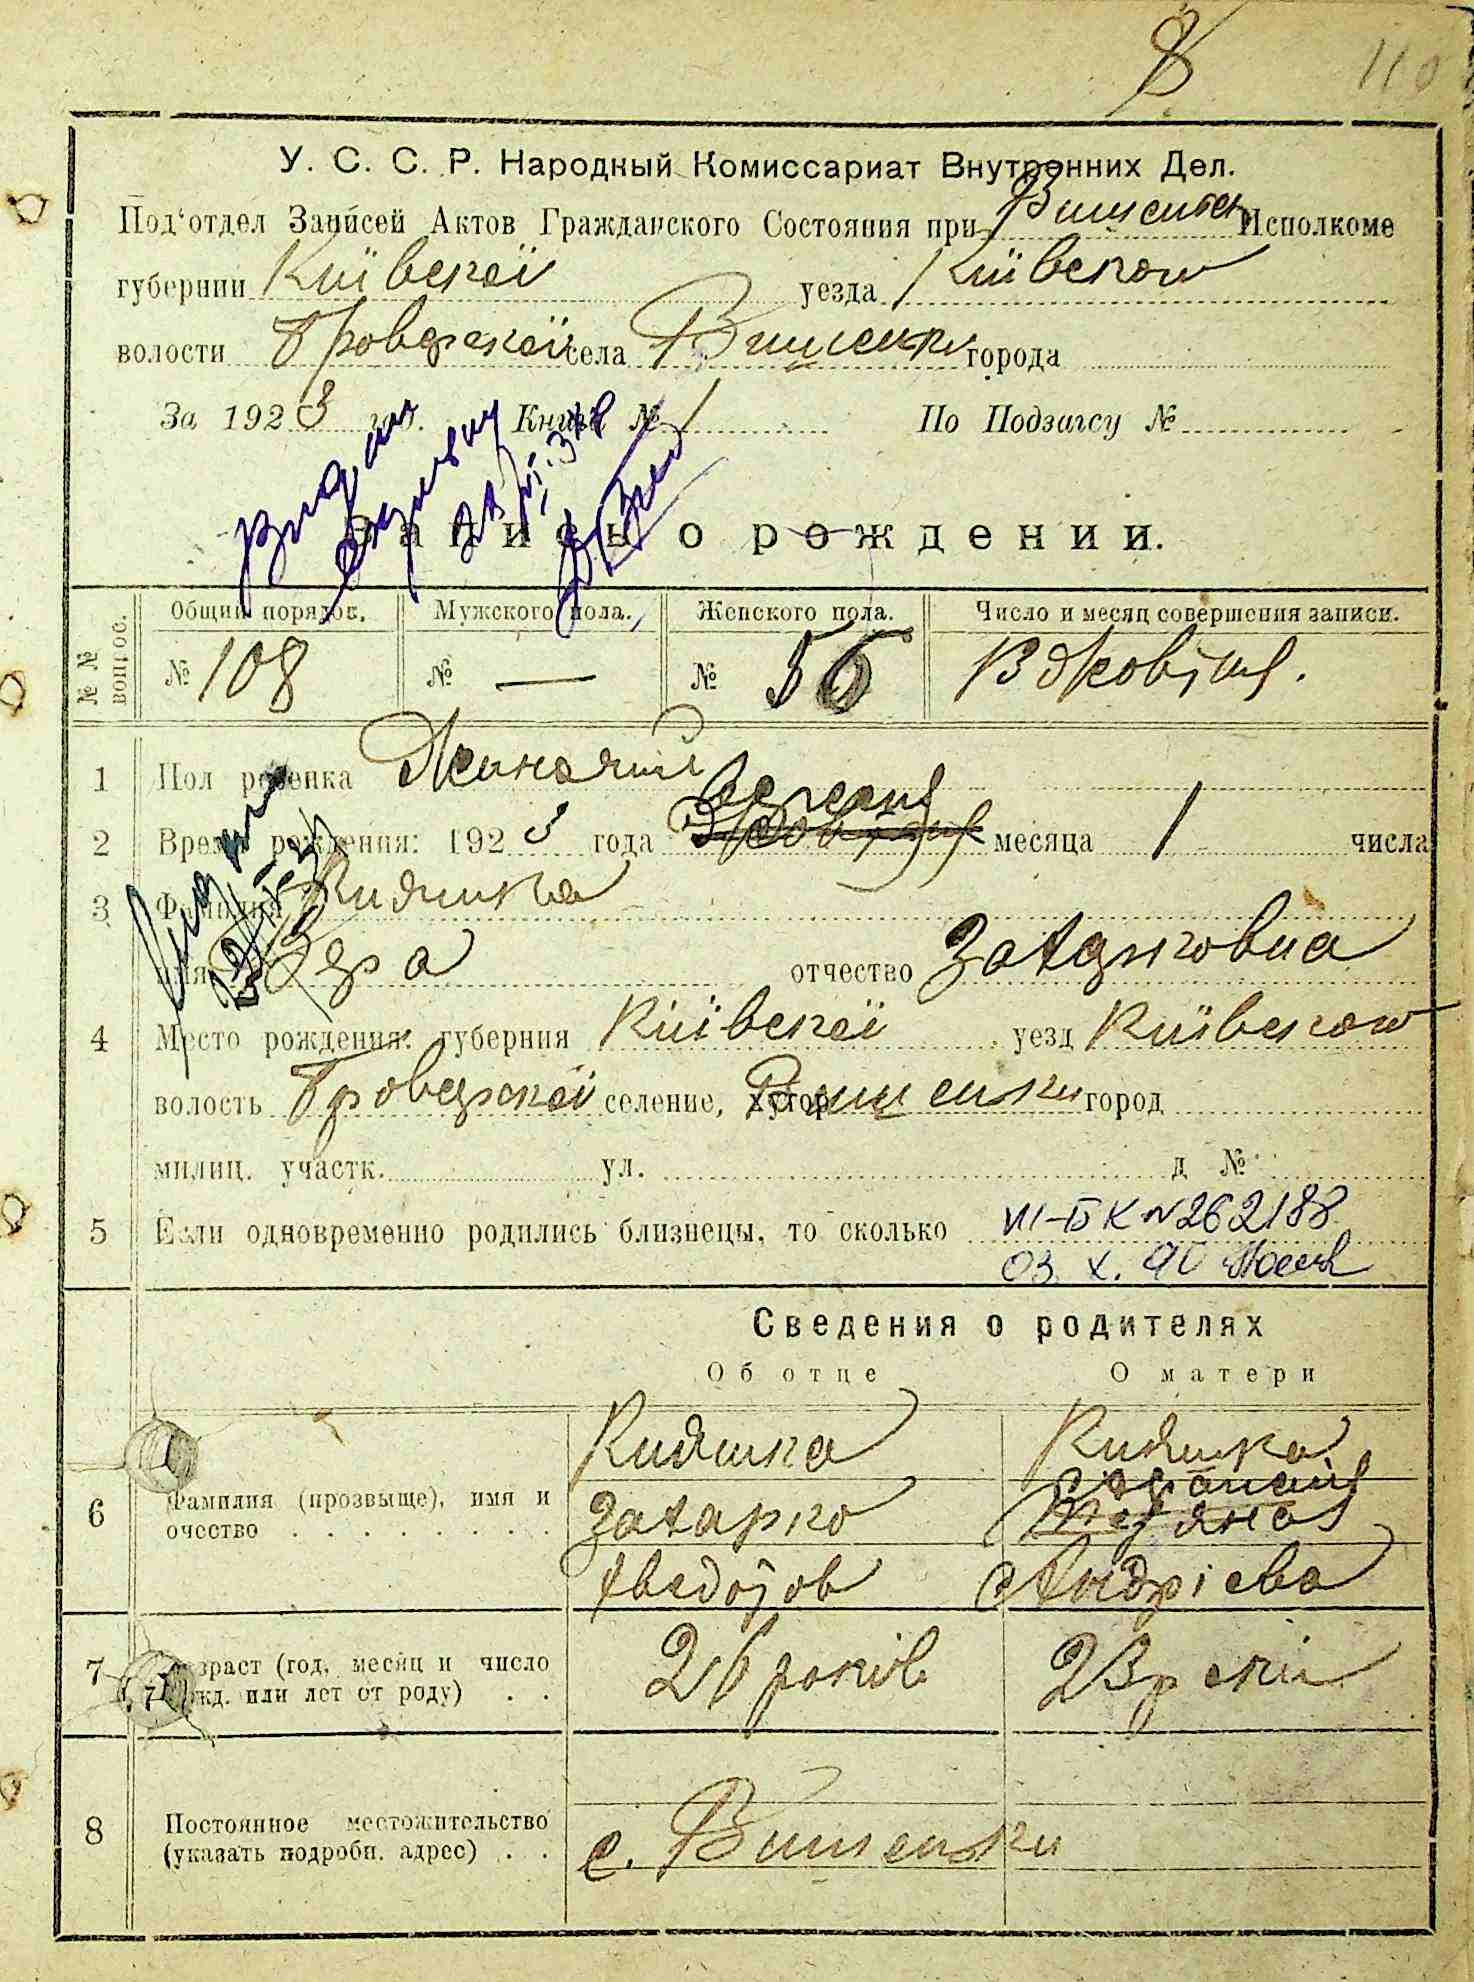 8
110
У. С. С. Р. Народный Комиссариат Внутренних Дел.
Под‘отдел Записей Актов Гражданского Состояния при Вишенськ Исполкоме
губернии Київскої уезда Київском
волости Броварскої села Вишеньки города
За 1923 год. Книга № 1 По Подзагсу №
Запись о рождении.
№ № вопрос. Общий порядов. Мужского пола. Женского пола. Число и месяц совершения записи.
№ 108 № — № 56 3 Жовтня.
1 Пол ребенка Жиночий
Вересня
2 Время рождения: 1923 года Жовтня месяца 1 числа
3 Фамилия Кияшка
имя Вера отчество Захарковна
4 Место рождения: губерния Київскої уезд Київском
волость Броварскої селение, хутор Вишеньки город
милиц. участк. ул. д №
5 Если одновременно родились близнецы, то сколько
VII-БК № 262188
03. X. 90
Сведения о родителях
Об отце О матери
Кияшка Кияшка
6 Фамилия (прозвыще), имя и очество
Захарко
Тетяна
Хведотов Андріева
7 Возраст (год, месяц и число рожд. или лет от роду) 26 років 23 роки
8 Постоянное местожительство (указать подробн. адрес) с. Вишеньки